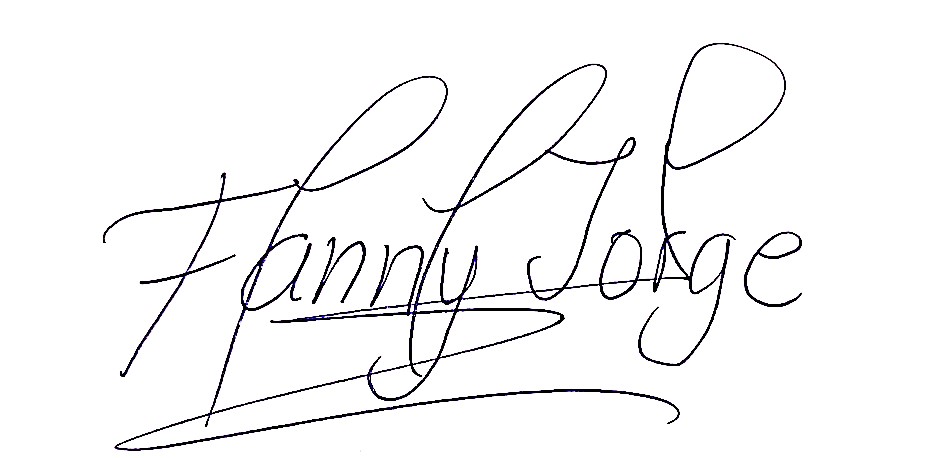 Fanny Jorge